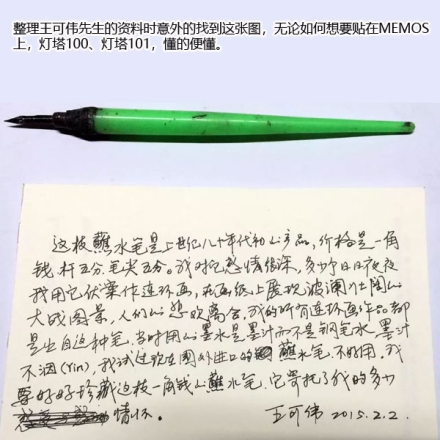 整理王可伟先生的资料时意外的找到这张图，无论如何想要贴在MEMOS
上，灯塔100、灯塔101，懂的便懂。
这枝蘸水笔是上世纪八十年代初的产品，价格是一角
钱杆五分笔尖五分。我对它感情很深，多少个日日夜夜
我用它伏案作连环画，在画纸上展现波澜壮阔的
大战图景，人们的悲欢离合，我的所有连环画作品都
是出自这种笔，当时用的墨水是墨汁而不是钢笔水，墨汁
不洇(Yin)，我试过现在国外进口的蘸水笔，不好用，我
要好好珍藏这枝一角钱的蘸水笔，它寄托了我的多少
情怀。
王可伟 2015.2.2.